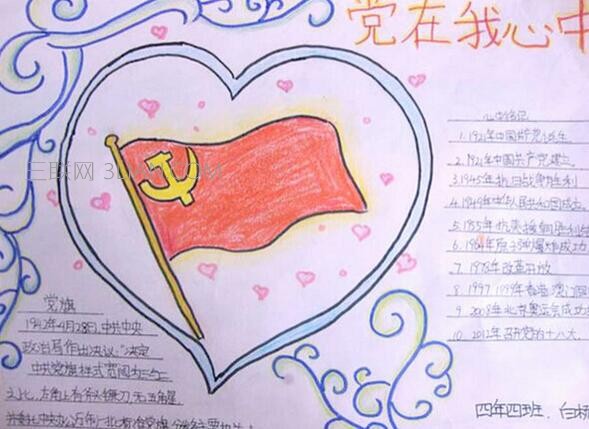 党在我心中
三联网 3L
1. 1921年中国共产党诞生
2. 1921年中国共产党建立
3. 1945年抗日战争胜利
4. 1949年中华人民共和国成立
6. 1964年原子弹爆炸成功
7. 1978年改革开放
8. 1997 1999年香港 澳门回
9. 2008年北京奥运会成功
10. 2012年召开党的十八大
党旗
1942年4月28日,中共中央
政治局作出决议:"决定
中共党旗样式宽阔为三与二
之比,左角上有斧头镰刀,无五角星
四年四班